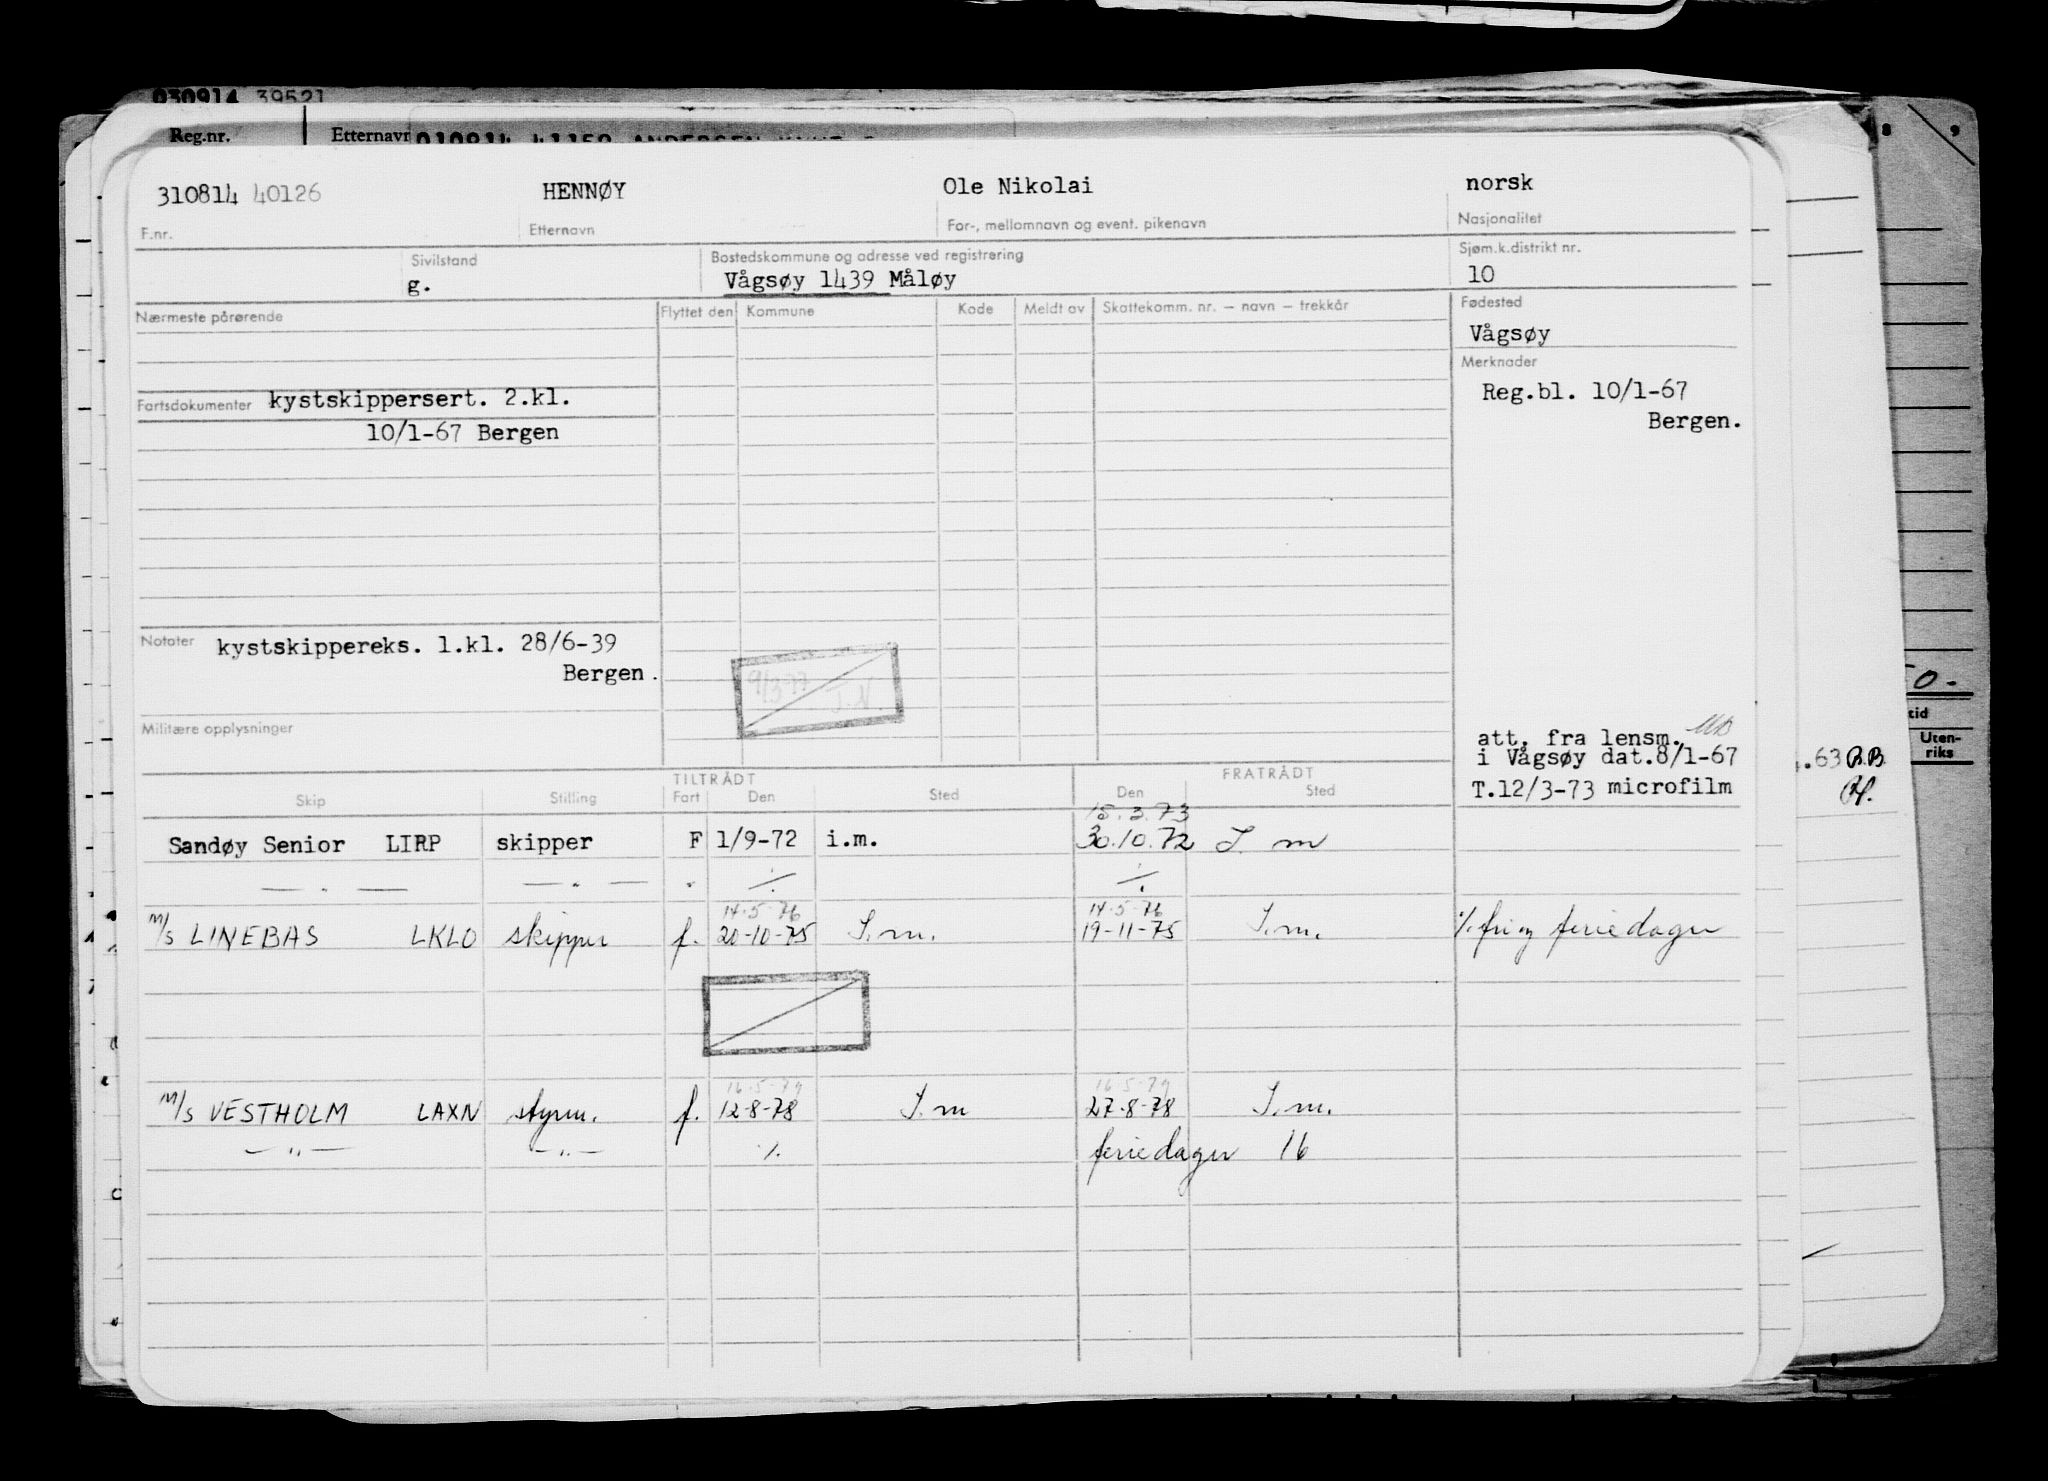 030914 39521
Reg.nr. Etternavn 010814 41158 ANDERSEN
8 9
310814 40126 HENNØY Ole Nikolai norsk
F.nr. Etternavn For-, mellomnavn og event. pikenavn Nasjonalitet
Sivilstand Bostedskommune og adresse ved registrering Sjøm.k.distrikt nr.
g. Vågsøy 1439 Måløy 10
Nærmeste pårørende Flyttet den Kommune Kode Meldt av Skattekomm. nr. – navn – trekkår Fødested
Vågsøy
Merknader
Fartsdokumenter kystskippersert. 2.kl. Reg.bl. 10/1-67
10/1-67 Bergen Bergen.
Notater kystskippereks. 1.kl. 28/6-39
Bergen.
9/3-77 J.N.
Militære opplysninger
att. fra lensm.
i Vågsøy dat.8/1-67
T.12/3-73 microfilm
0.-
tid
Uten-
riks
.63 B.B.
TILTRÅDT FRATRÅDT
Skip Stilling Fart Den Sted Den Sted
15.3.73
Sandøy Senior LIRP skipper F 1/9-72 i.m. 30.10.72 I. m
— " — — " — " ⁒ ⁒
14-5-76 14-5-76
M/S LINEBAS LKLO skipper f. 20-10-75 I.m. 19-11-75 I.m. ⁒ fri og feriedager
16-5-79 16-5-79
M/S VESTHOLM LAXN styrm. f. 12-8-78 I.m 27-8-78 I.m.
— " — — " — ⁒ feriedager 16